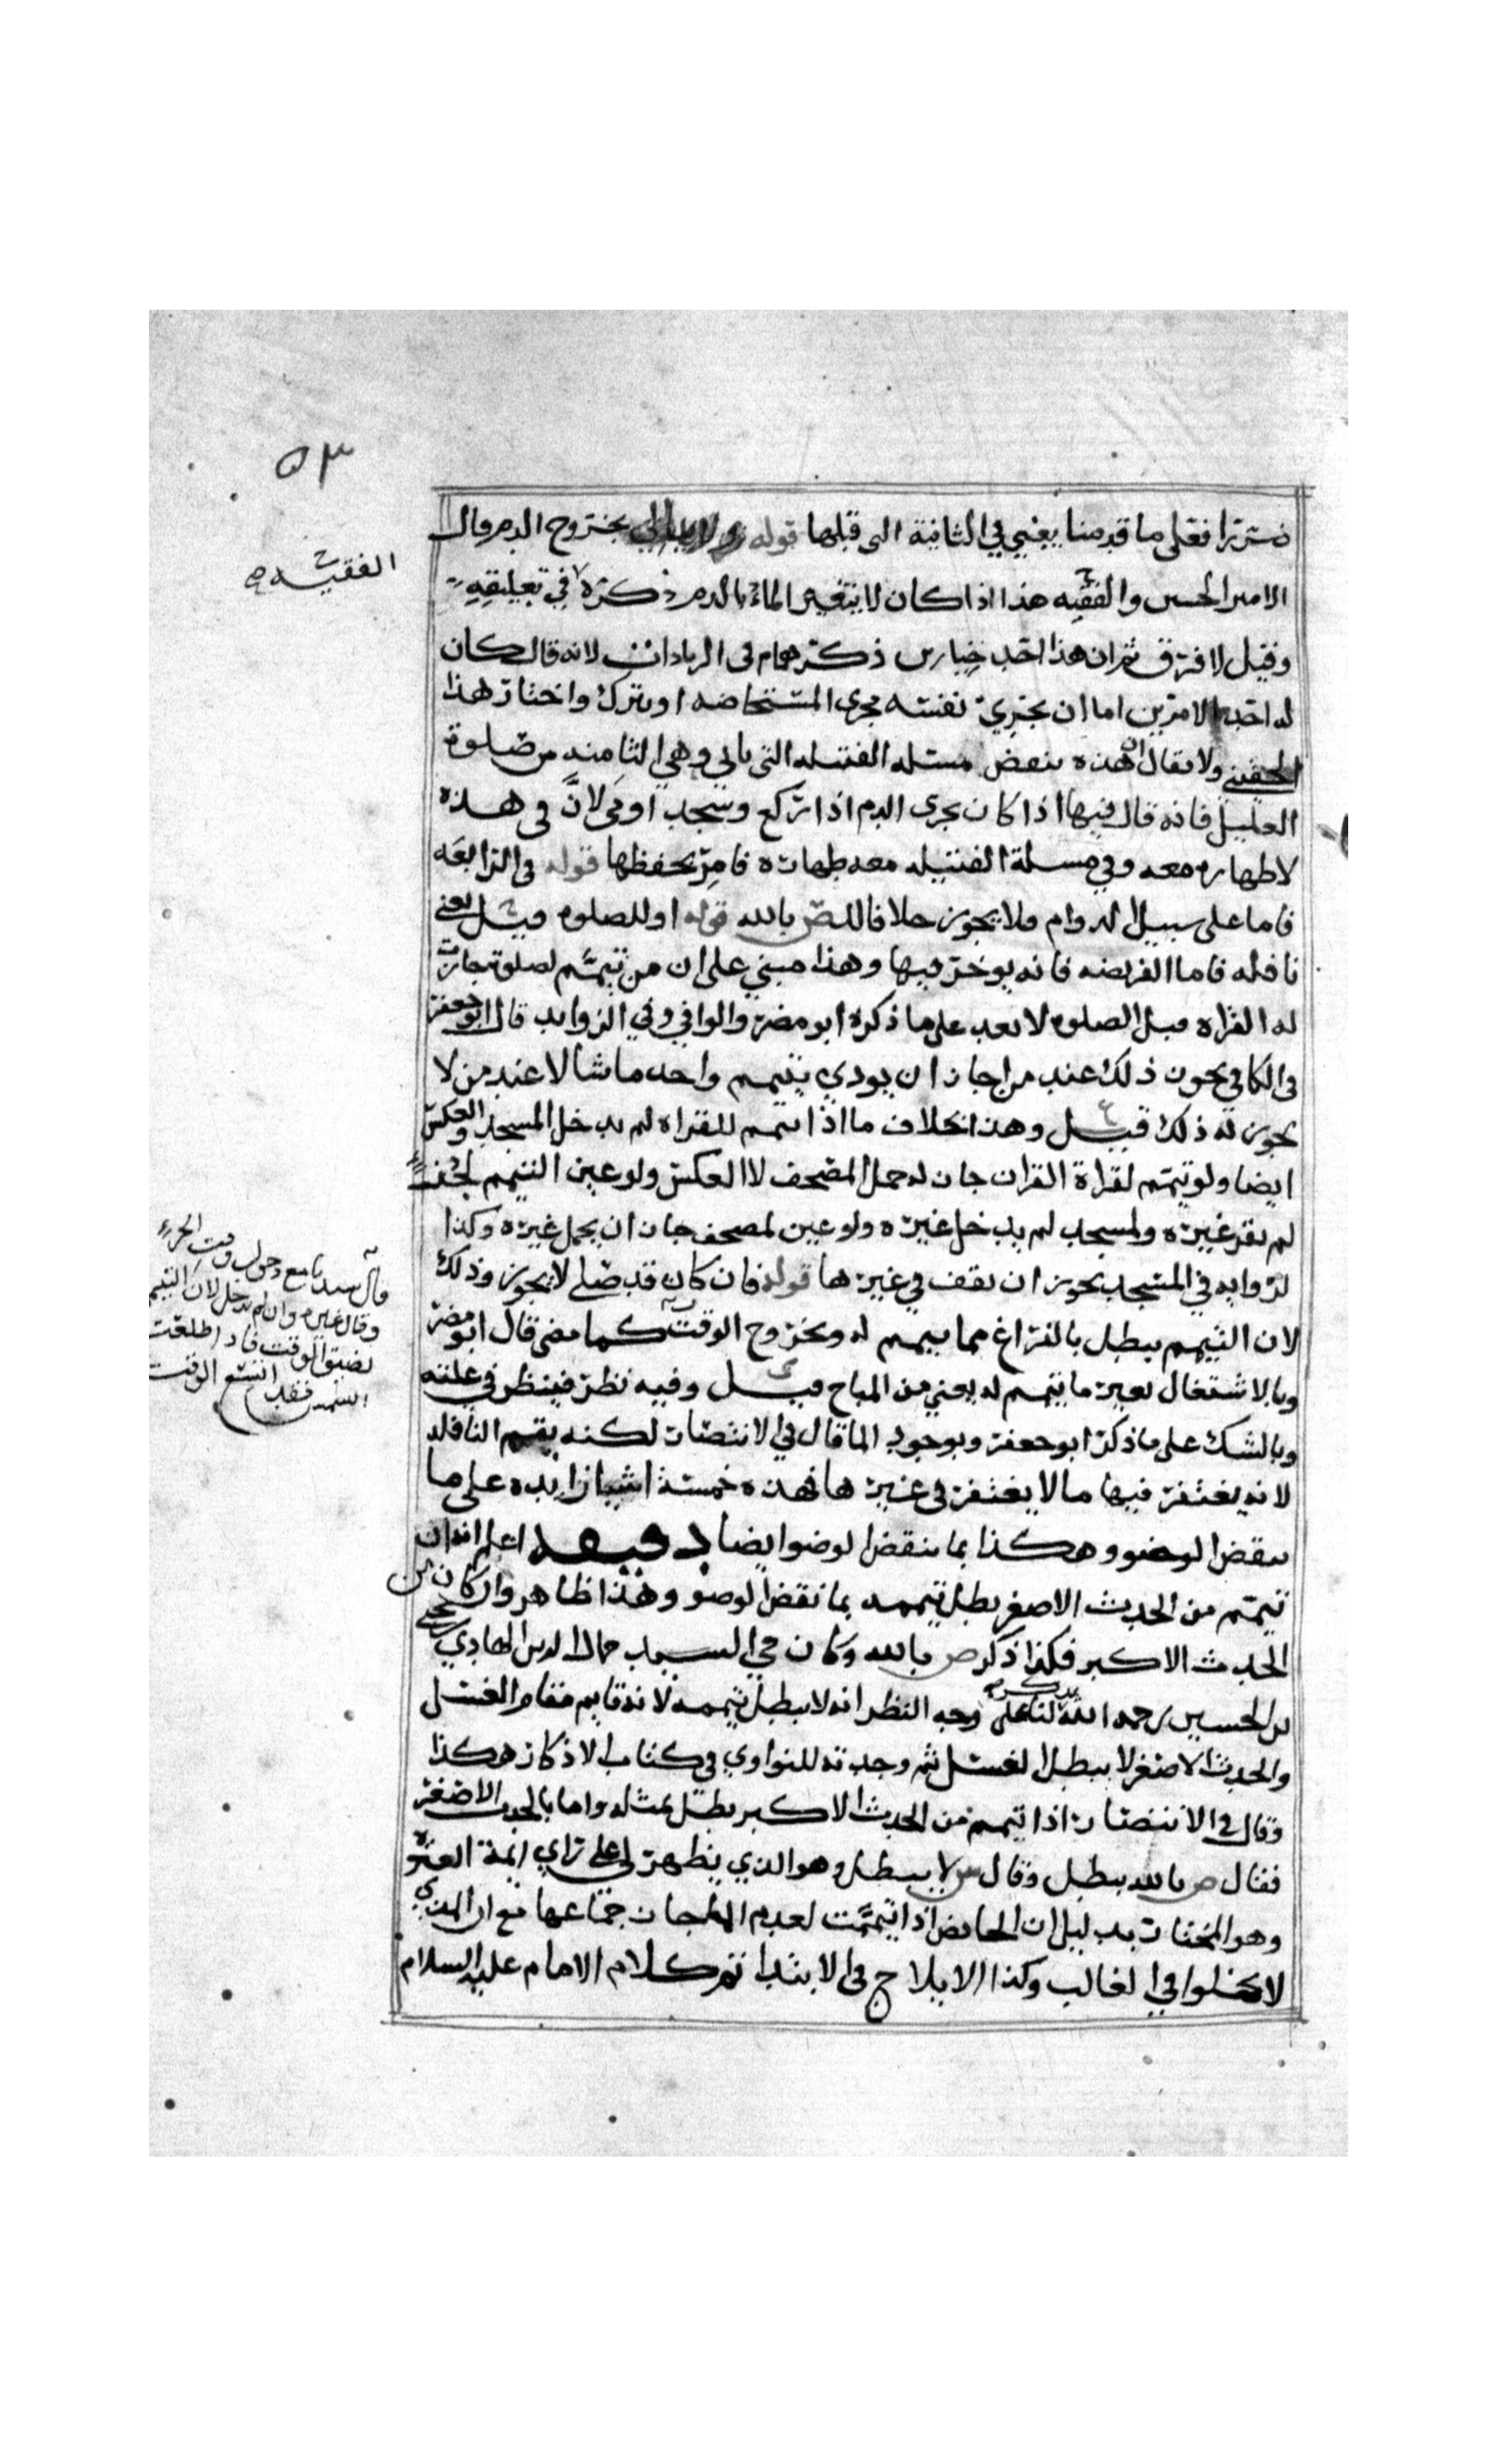 ٥٣
ضررا فعلى ما قدمنا يعني في الثانية التي قبلها قوله ولا يبالي بخروج الدم قال
الفقيه ص
الامير الحسين والفقيه هذا اذا كان لا يتغير الماء بالدم ذكره في تعليقه
وقيل لا فرق ثم ان هذا احد خيارين ذكرهما م في الزيادات لانه قال كان
له احد الامرين اما ان يجري نفسه مجرى المستحاضه او يترك واختار هذا
ولا يقال ان هذه تنقض مسئله الفتيله التي ياتي وهي الثامنه من صلوة
العليل فانه قال فيها اذا كان يجري الدم اذا ركع وسجد اومى لان في هذه
لا طهاره معه وفي مسلة الفتيله معه طهاره فامر بحفظها قوله في الرابعه
فاما على سبيل الدوام فلا يجوز خلافا للص بالله قوله او للصلوه قيل يعني
نافله فاما الفريضه فانه يوخر فيها وهذا مبني على ان من تيمم لصلوة جازت
له القراه قبل الصلوه لا بعد على ما ذكره ابو مضر والوافي وفي الزوايد قال ابو جعفر
في الكافي يجوز ذلك عند من اجاز ان يودي بتيمم واحد ما شا لا عند من لا
يجوز له ذلك قيل وهذا بخلاف ما اذا تيمم للقراه لم يدخل المسجد والعكس
ايضا ولو تيمم لقراة القران جاز له حمل المصحف لا العكس ولو عين التيمم
لم يقر غيره ولمسجد لم يدخل غيره ولو عين لمصحف جاز ان يحمل غيره وكذا
لزوايه في المسجد يجوز ان يقف في غيرها قوله فان كان قد صلى لا يجوز وذلك
لان التيمم يبطل بالفراغ مما تيمم له وبخروج الوقت كما مضى قال ابو مضر
وبالاشتغال بغير ما تيمم له يعني من المباح قيل وفيه نظر فينظر في علته
وبالشك على ما ذكر ابو جعفر وبوجود الما قال في الانتصار لكنه يتمم النافله
لانه يغتفر فيها ما لا يغتفر في غيرها فهذه خمسة اشيا زايده على ما
ينقض الوضو وهكذا بما ينقض الوضو ايضا دقيقه اعلم انه ان
تيمم من الحدث الاصغر بطل تيممه بما نقض الوضو وهذا ظاهر وان كان من
الحدث الاكبر فكذا ذكر ص بالله وكان حي السيد جمال الدين الهادي بن يحيى
بن الحسين رحمه الله يذكر لنا على وجه النظر انه لا يبطل تيممه لانه قايم مقام الغسل
والحدث الاصغر لا يبطل الغسل ثم وجدته للنواوي في كتاب الاذكار هكذا
وقال في الانتصار اذا تيمم من الحدث الاكبر بطل بمثله واما بالحدث الاصغر
فقال ص بالله يبطل وقال ش لا يبطل وهو الذي يظهر لي على راي ايمة العتره
وهو المختار بدليل ان الحايض اذا تيممت لعدم الما جاز جماعها مع ان المذي
لا يخلوا في الغالب وكذا الايلاج في الابتدا تم كلام الامام عليه السلام
وقال غيره وان لم يدخل لان التيمم
الشمس فقد اتسع الوقت